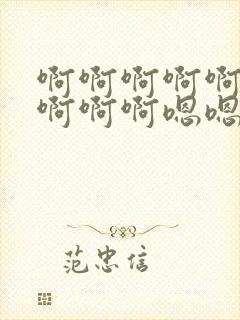 啊啊啊啊啊
啊啊啊嗯嗯
范忠信